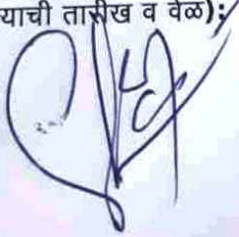 याची तारीख व वेळ):